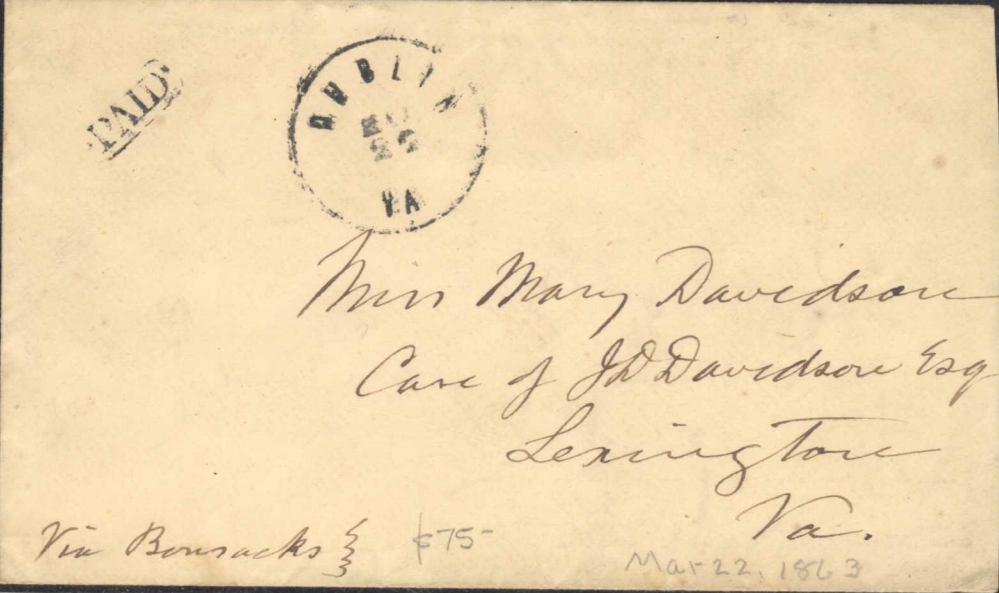 PAID
DUBLIN
22
VA
Miss Mary Davidson
Care of J D Davidson Esq
Lexington
Va.
Via Bonsacks
$75-
Mar 22, 1863